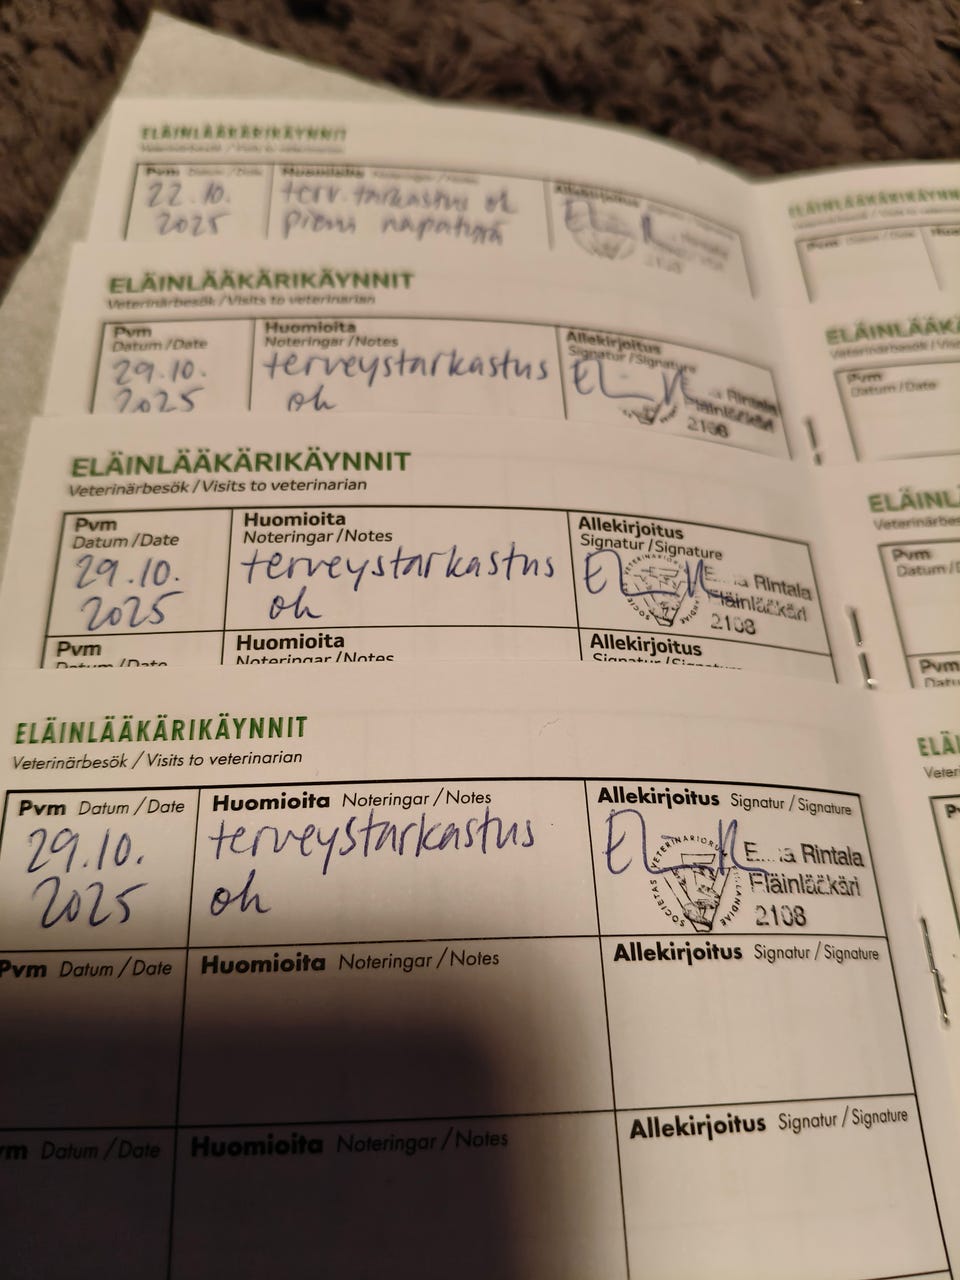 ELÄINLÄÄKÄRIKÄYNNIT
Veterinärbesök / Visits to veterinarian
Pvm Datum / Date Huomioita Noteringar / Notes Allekirjoitus Signatur / Signature
22.10. terv.tarkastus ok
2025 pieni napatyrä
Rintala
2108
ELÄINLÄÄKÄRIKÄYNNIT
Veterinärbesök / Visits to veterinarian
Pvm Huomioita Allekirjoitus
Datum / Date Noteringar / Notes Signatur / Signature
29.10. terveystarkastus
2025 ok
Rintala
Eläinlääkäri
2108
ELÄINLÄÄKÄRIKÄYNNIT
Veterinärbesök / Visits to veterinarian
Pvm Huomioita Allekirjoitus
Datum / Date Noteringar / Notes Signatur / Signature
29.10. terveystarkastus
2025 ok
Rintala
Eläinlääkäri
2108
Pvm Huomioita Allekirjoitus
Datum / Date Noteringar / Notes Signatur / Signature
ELÄINLÄÄKÄRIKÄYNNIT
Veterinärbesök / Visits to veterinarian
Pvm Datum / Date Huomioita Noteringar / Notes Allekirjoitus Signatur / Signature
29.10. terveystarkastus
2025 ok
SOCIETAS VETERINARIORUM
Rintala
Eläinlääkäri
2108
Pvm Datum / Date Huomioita Noteringar / Notes Allekirjoitus Signatur / Signature
vm Datum / Date Huomioita Noteringar / Notes Allekirjoitus Signatur / Signature
ELÄINLÄÄKÄRIKÄYNN
Veterinärbesök / Visits to veterinarian
Pvm Datum / Date Huo
ELÄINLÄÄKÄ
Veterinärbesök / Visi
Pvm
Datum / Date
ELÄINL
Veterinärbes
Pvm
Datum / D
Pvm
Datu
ELÄI
Veter
P